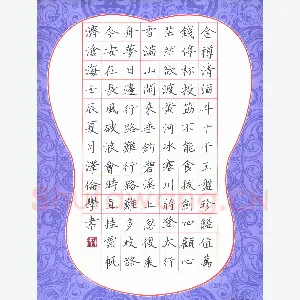 金樽清酒斗十千玉盤珍饈值萬
錢停杯投箸不能食拔劍四顧心
茫然欲渡黃河冰塞川將登太行
雪滿山閒來垂釣碧溪上忽復乘
舟夢日邊行路難行路難多歧路
今安在長風破浪會時直掛雲帆
濟滄海壬辰夏月澤倫學書